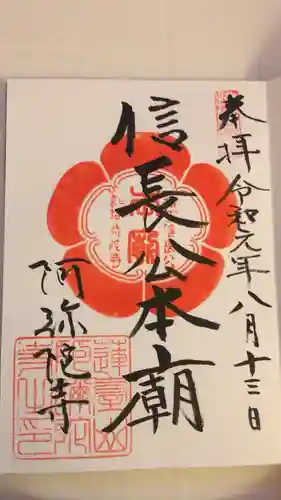 奉拝 令和元年八月十三日
信長公本廟
阿弥陀寺